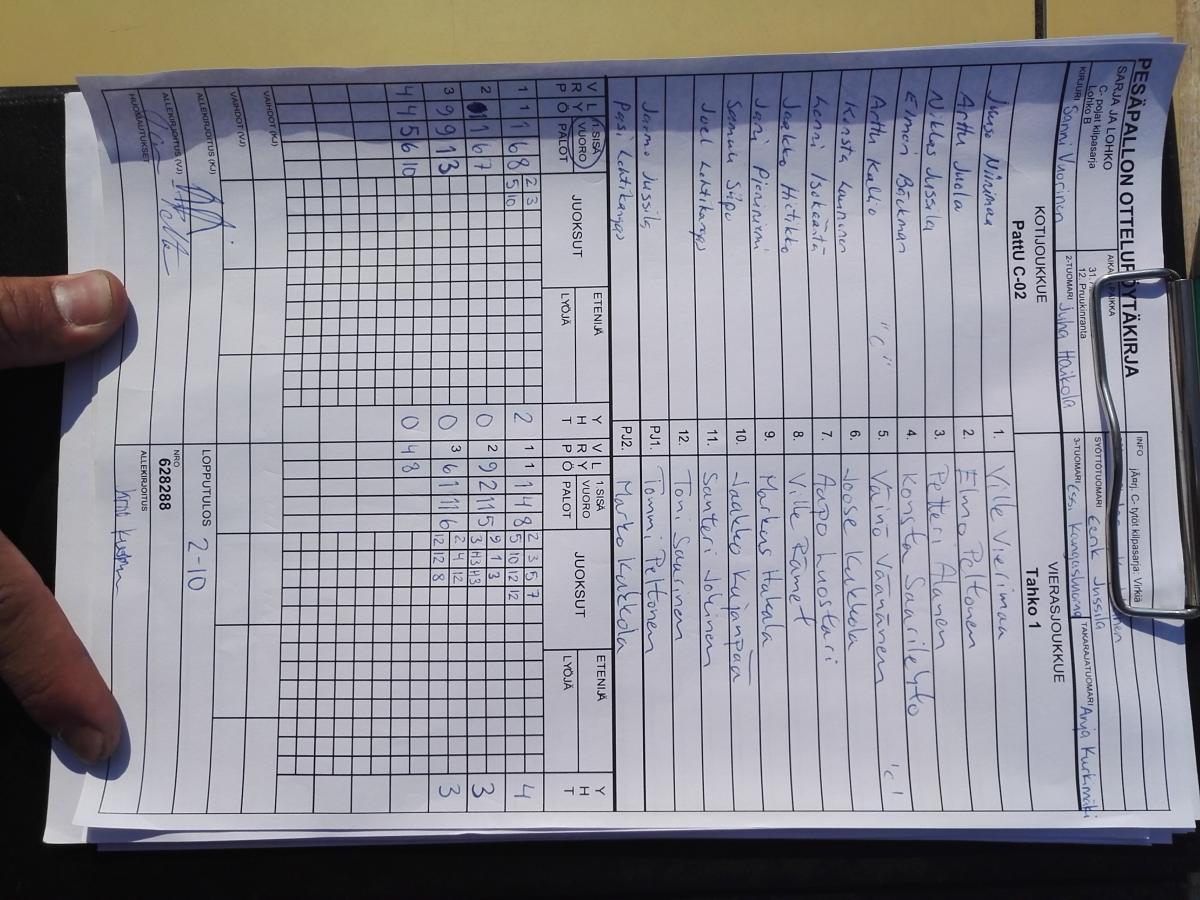 PESÄPALLON OTTELUPÖYTÄKIRJA
SARJA JA LOHKO
C. pojat kilpasarja
Lohko B
PAIKKA
12. Pruukinranta
INFO jÄrj. C-tytöt kilpasarja: Virkiä
SYÖTTÖTUOMARI Eerik Jussila
KIRJURI Sanni Vuorinen
2-TUOMARI Juha Haikola
3-TUOMARI Essi Kangasluoma
TAKARAJATUOMARI Anja Kurkimäki
KOTIJOUKKUE VIERASJOUKKUE
PattU C-02 Tahko 1
Juuso Niinimaa 1. Ville Vierimaa
Arttu Juola 2. Elmo Peltonen
Niklas Jussila 3. Petteri Alanen
Elmeri Bäckman 4. Konsta Saarilehto
Arttu Kallio "C" 5. Väinö Väänänen "C"
Konsta Luunonen 6. Joose Kukkola
Lenni Isokääntä 7. Aapo Luostari
Jaakko Hietikko 8. Ville Rämet
Jani Pieniniemi 9. Markus Hakala
Samuli Siipo 10. Jaakko Kujanpää
Joel Lehtikangas 11. Santeri Jokinen
12. Toni Saarinen
Jarmo Jussila PJ1. Tommi Peltonen
Pasi Lehtikangas PJ2. Marko Kukkola
V R L Y Ö 1.SISÄ VUORO PALOT JUOKSUT ETENIJÄ LYÖJÄ Y H T V R L Y Ö 1.SISÄ VUORO PALOT JUOKSUT ETENIJÄ LYÖJÄ Y H T
1 1 1 6 8 2 3 2 1 1 1 4 8 2 3 5 7 4
5 10 5 10 12 12
2 1 1 6 7 0 2 9 2 11 5 9 1 3 3
3 H3 H3
3 9 9 1 3 0 3 6 1 11 6 2 4 12 3
12 12 8
4 4 5 6 10 0 4 8
VAIHDOT (KJ)
VAIHDOT (VJ)
LOPPUTULOS 2-10
ALLEKIRJOITUS (KJ)
NRO
628288
ALLEKIRJOITUS (VJ)
ALLEKIRJOITUS
HUOMAUTUKSET